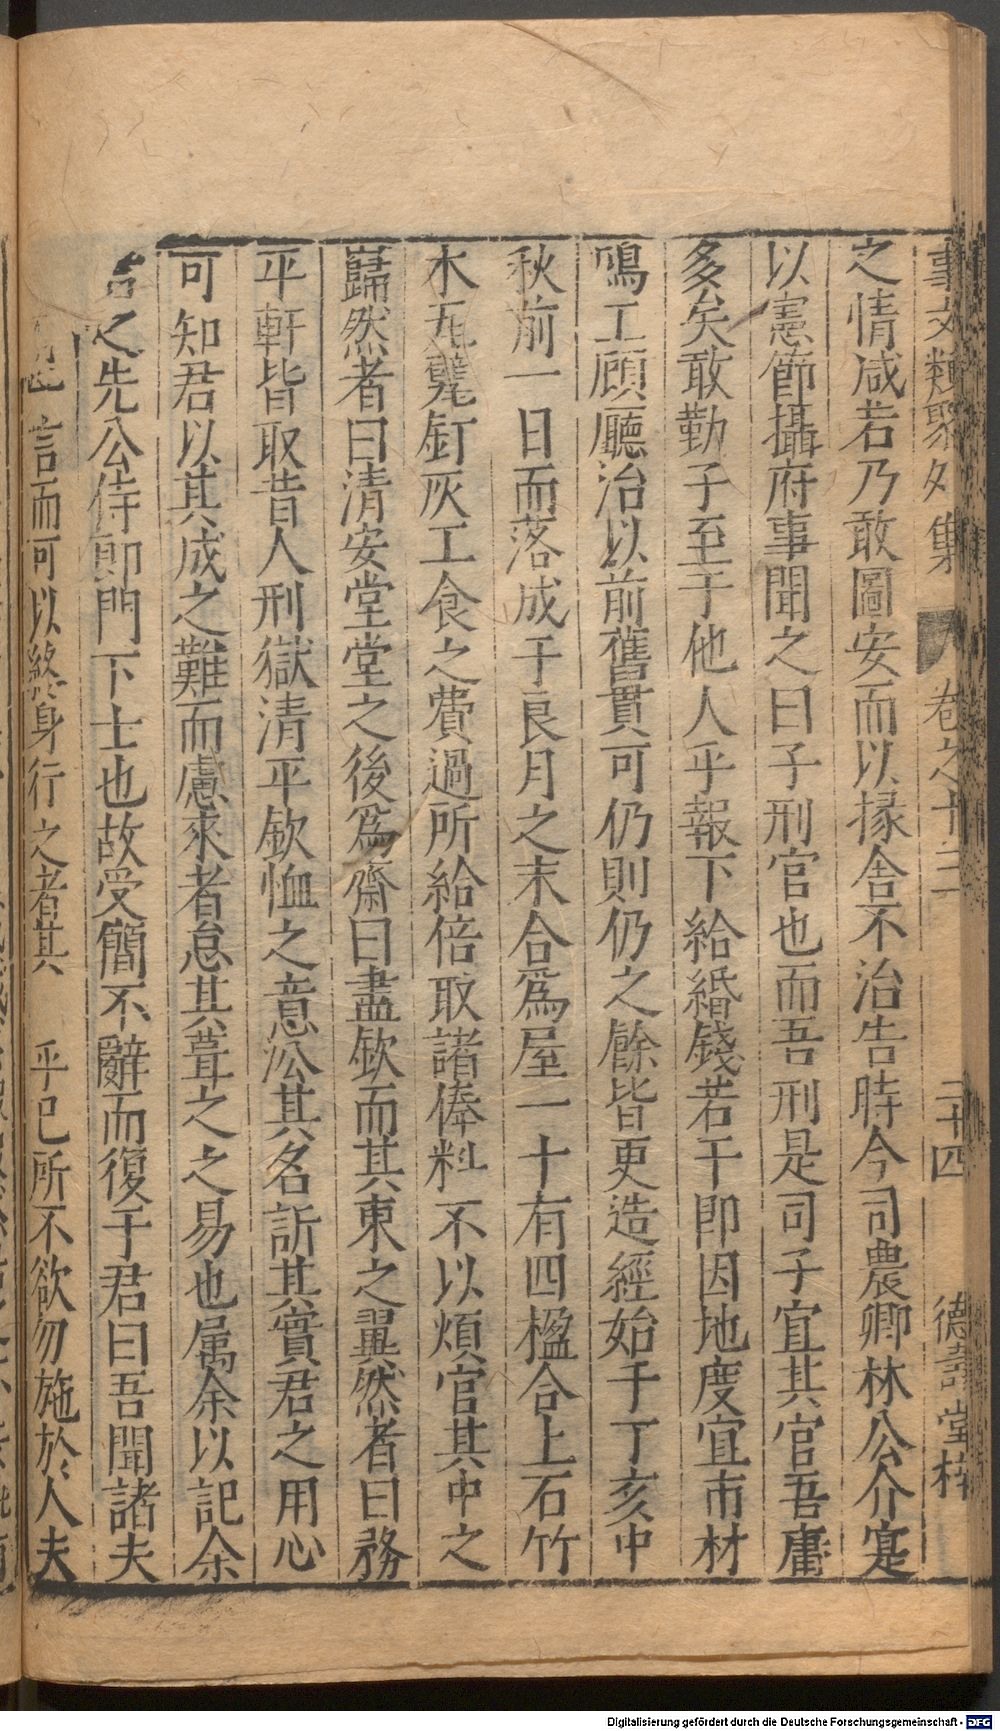 事文類聚外集 卷之十三 二十四 德壽堂梓
之情咸若乃敢圖安而以掾舎不治告時今司農卿林公介寔
以憲節攝府事聞之曰子刑官也而吾刑是司子宜其官吾庸
多矣敢勤子至于他人乎報下給緡錢若干即因地度宜市材
鳴工顧廳治以前舊貫可仍則仍之餘皆更造經始于丁亥中
秋前一日而落成于良月之末合爲屋一十有四楹合上石竹
木瓦甓釘灰工食之費過所給倍取諸俸料不以煩官其中之
巋然者曰清安堂堂之後爲齋曰盡欽而其東之翼然者曰務
平軒皆取昔人刑獄清平欽恤之意訟其名訢其實君之用心
可知君以其成之難而慮來者怠其葺之之易也属余以記余
言之先公侍郎門下士也故受簡不辭而復于君曰吾聞諸夫
言而可以終身行之者其 乎已所不欲勿施於人夫
Digitalisierung gefördert durch die Deutsche Forschungsgemeinschaft - DFG